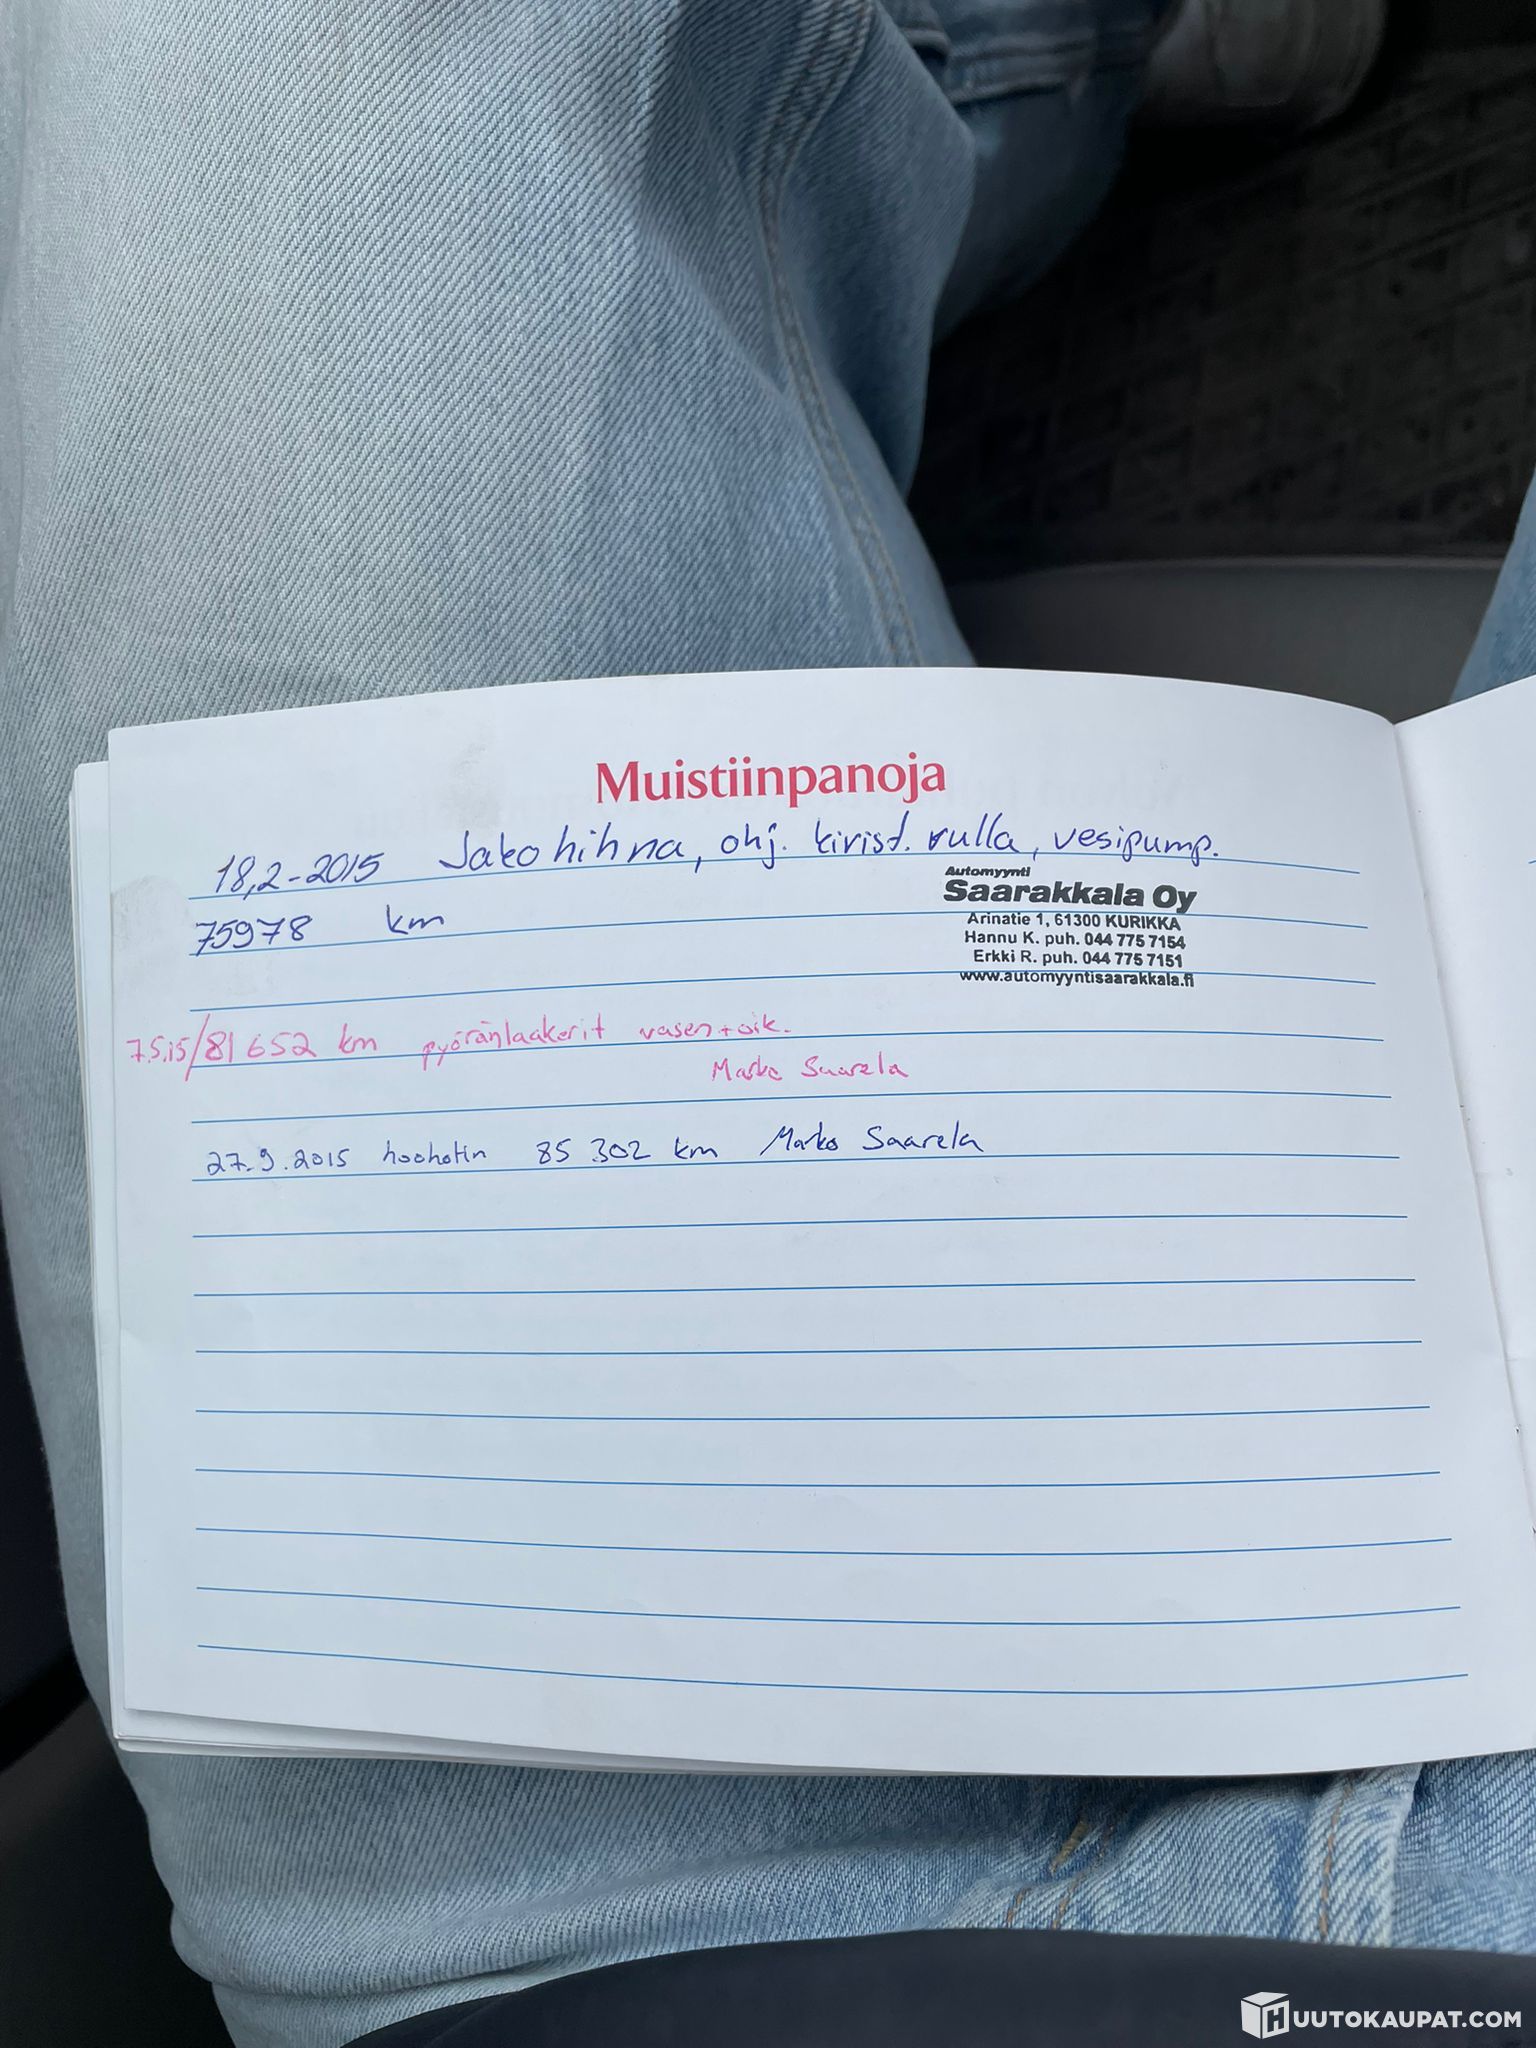 Muistiinpanoja
18,2-2015 Jakohihna, ohj. kirist. rulla, vesipump.
Automyynti
Saarakkala Oy
75978 km
Arinatie 1, 61300 KURIKKA
Hannu K. puh. 044 775 7154
Erkki R. puh. 044 775 7151
www.automyyntisaarakkala.fi
7.5.15/81 652 km pyöränlaakerit vasen + oik.
Marko Saarela
27.9.2015 85 302 km Marko Saarela
HUUTOKAUPAT.COM